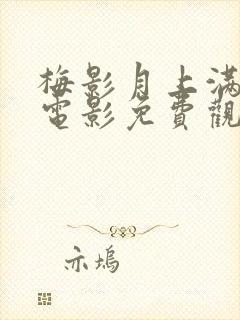 梅影月上满
電影免費觀
亦坞